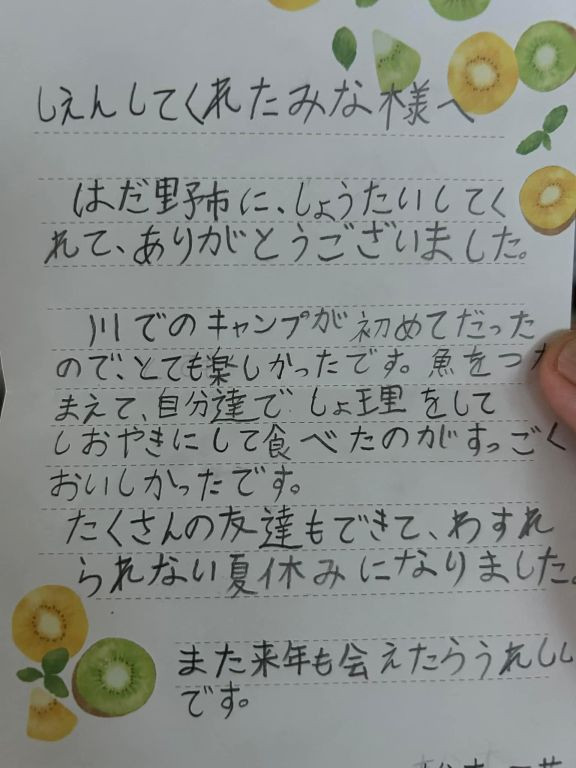 しえんしてくれたみな様へ
はだ野市に、しょうたいしてく
れて、ありがとうございました。
川でのキャンプが初めてだった
ので、とても楽しかったです。魚をつか
まえて、自分達でしょ理をして
しおやきにして食べたのがすっごく
おいしかったです。
たくさんの友達もできて、わすれ
られない夏休みになりました。
また来年も会えたらうれしい
です。